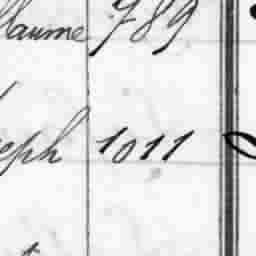 llaume 789
seph 1011